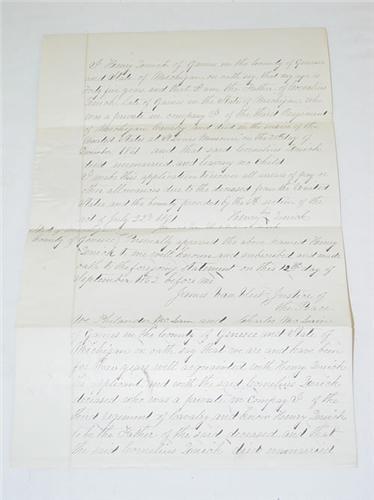 I Henry Quick of Gaines in the County of Genesee
and State of Michigan on oath say that my age is
forty five years and that I am the Father of Cornelius
Quick late of Gaines in the State of Michigan who
was a private in company of the third Regiment
of Michigan Cavalry and died in the service of the
United States at Missouri on the day of
and that said Cornelius Quick
died unmarried and leaving no child
I make this application to receive all arrears of pay or
other allowances due to the deceased from the United
States and the bounty provided by the section of the
act of July 22d 1861 Henry Quick
State of
County of Genesee Personally appeared the above named Henry
Quick to me well known and subscribed and made
oath to the foregoing statement on this 12th day of
September 1862 before me
James Van Vleet Justice of
the Peace
We Philander McLain and Charles McLain
of Gaines in the County of Genesee and State of
Michigan on oath say that we are and have been
for years well acquainted with Henry Quick
applicant and with the said Cornelius Quick
deceased who was a private in Company of the
third regiment of Cavalry and know Henry Quick
to be the Father of the said deceased and that
the said Cornelius Quick died unmarried